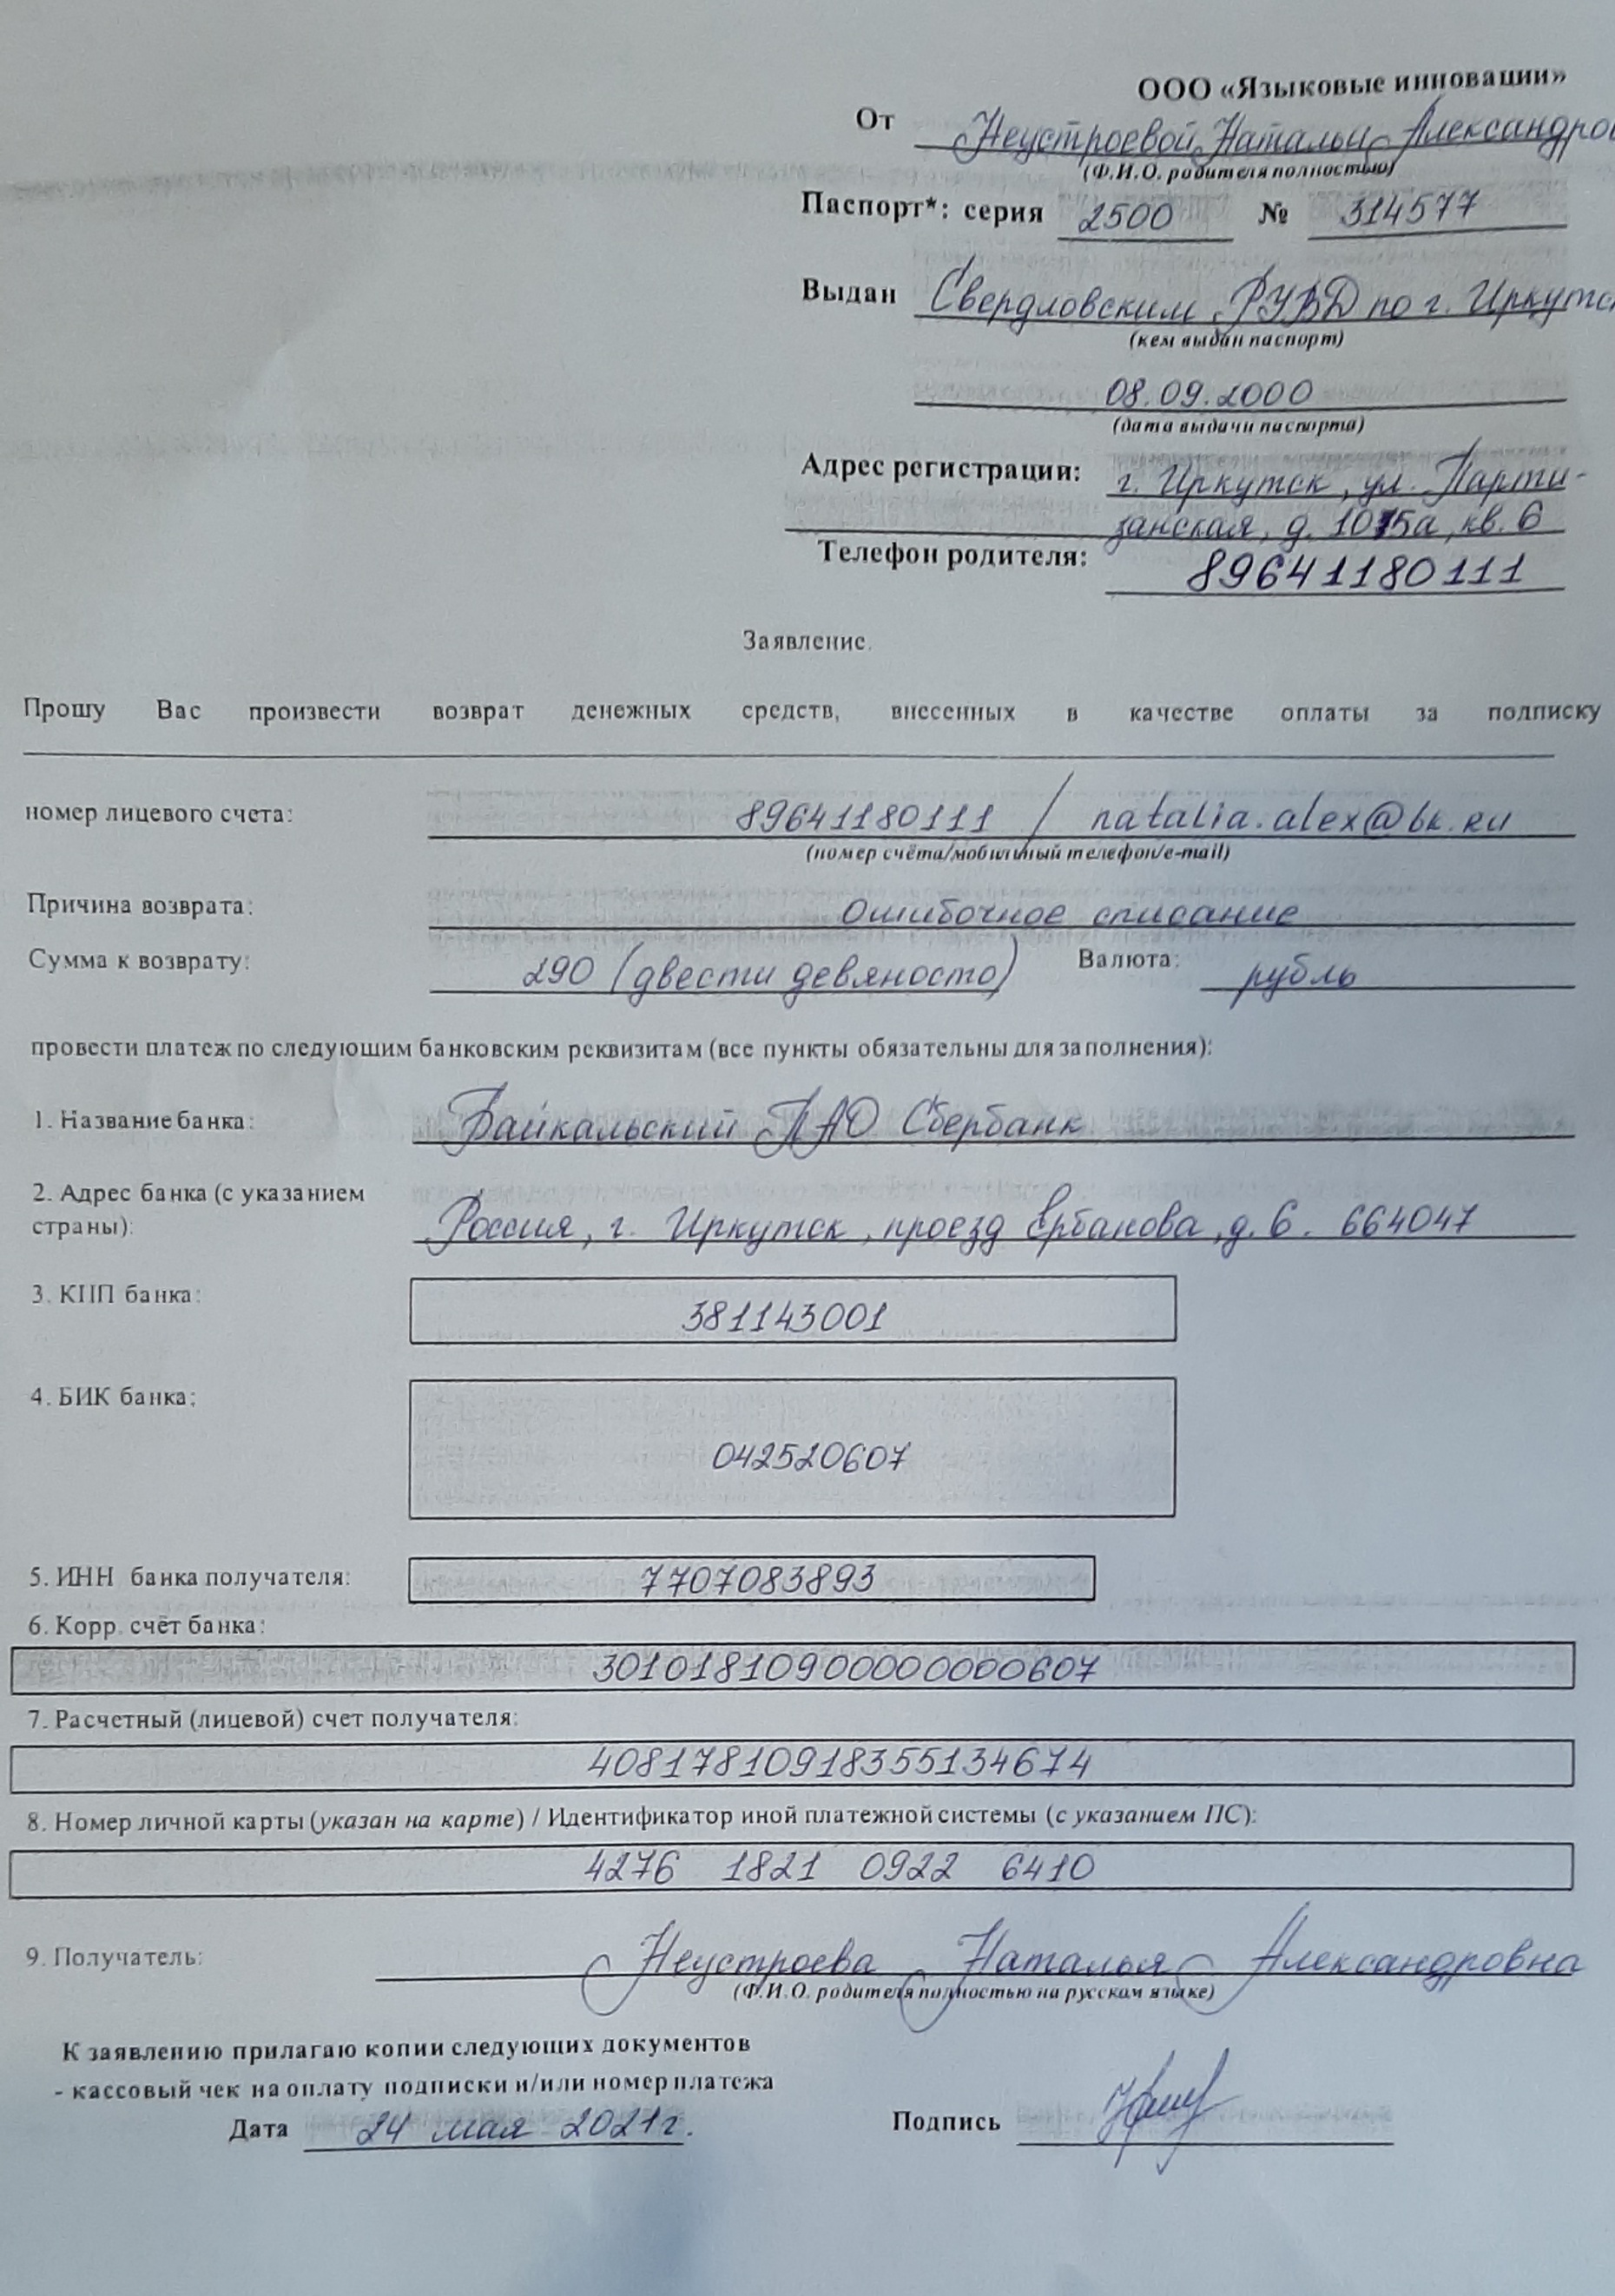 ООО «Языковые инновации»
От Неустроевой Натальи Александров
(Ф.И.О. родителя полностью)
Паспорт*: серия 2500 № 314577
Выдан Свердловским РУВД по г. Иркутс
(кем выдан паспорт)
08.09.2000
(дата выдачи паспорта)
Адрес регистрации: г. Иркутск, ул. Парти-
занская, д. 105а, кв. 6
Телефон родителя: 89641180111
Заявление.
Прошу Вас произвести возврат денежных средств, внесенных в качестве оплаты за подписку
номер лицевого счета: 89641180111 / natalia.alex@bk.ru
(номер счёта/мобильный телефон/e-mail)
Причина возврата: ошибочное списание
Сумма к возврату: 290 (двести девяносто) Валюта: рубль
провести платеж по следующим банковским реквизитам (все пункты обязательны для заполнения):
1. Название банка: Байкальский ПАО Сбербанк
2. Адрес банка (с указанием
страны): Россия, г. Иркутск, проезд Ербанова, д. 6. 664047
3. КПП банка: 381143001
4. БИК банка; 042520607
5. ИНН банка получателя: 7707083893
6. Корр. счёт банка:
30101810900000000607
7. Расчетный (лицевой) счет получателя:
40817810918355134674
8. Номер личной карты (указан на карте) / Идентификатор иной платежной системы (с указанием ПС):
4276 1821 0922 6410
9. Получатель: Неустроева Наталья Александровна
(Ф.И.О. родителя полностью на русском языке)
К заявлению прилагаю копии следующих документов
- кассовый чек на оплату подписки и/или номер платежа
Дата 24 мая 2021г. Подпись